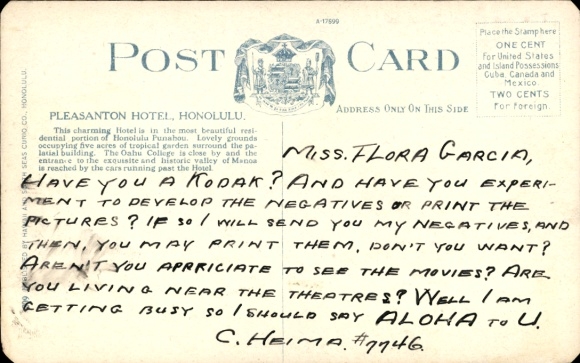 A-17699
POST CARD
Place the Stamp here
ONE CENT
For United States
and Island Possessions
Cuba, Canada and
Mexico.
TWO CENTS
For Foreign.
ADDRESS ONLY ON THIS SIDE
PLEASANTON HOTEL, HONOLULU.
This charming Hotel is in the most beautiful resi-
dential portion of Honolulu Punahou. Lovely grounds
occupying five acres of tropical garden surround the pa-
latial building. The Oahu College is close by and the
entrance to the exquisite and historic valley of Manoa
is reached by the cars running past the Hotel.
SEAS CURIO CO., HONOLULU.
MISS. FLORA GARCIA,
HAVE YOU A KODAK? AND HAVE YOU EXPERI-
MENT TO DEVELOP THE NEGATIVES OR PRINT THE
PICTURES? IF SO I WILL SEND YOU MY NEGATIVES, AND
THEN, YOU MAY PRINT THEM, DON'T YOU WANT?
AREN'T YOU APPRICIATE TO SEE THE MOVIES? ARE
YOU LIVING NEAR THE THEATRES? WELL I AM
GETTING BUSY SO I SHOULD SAY ALOHA TO U.
C. HEIMA. #7746.